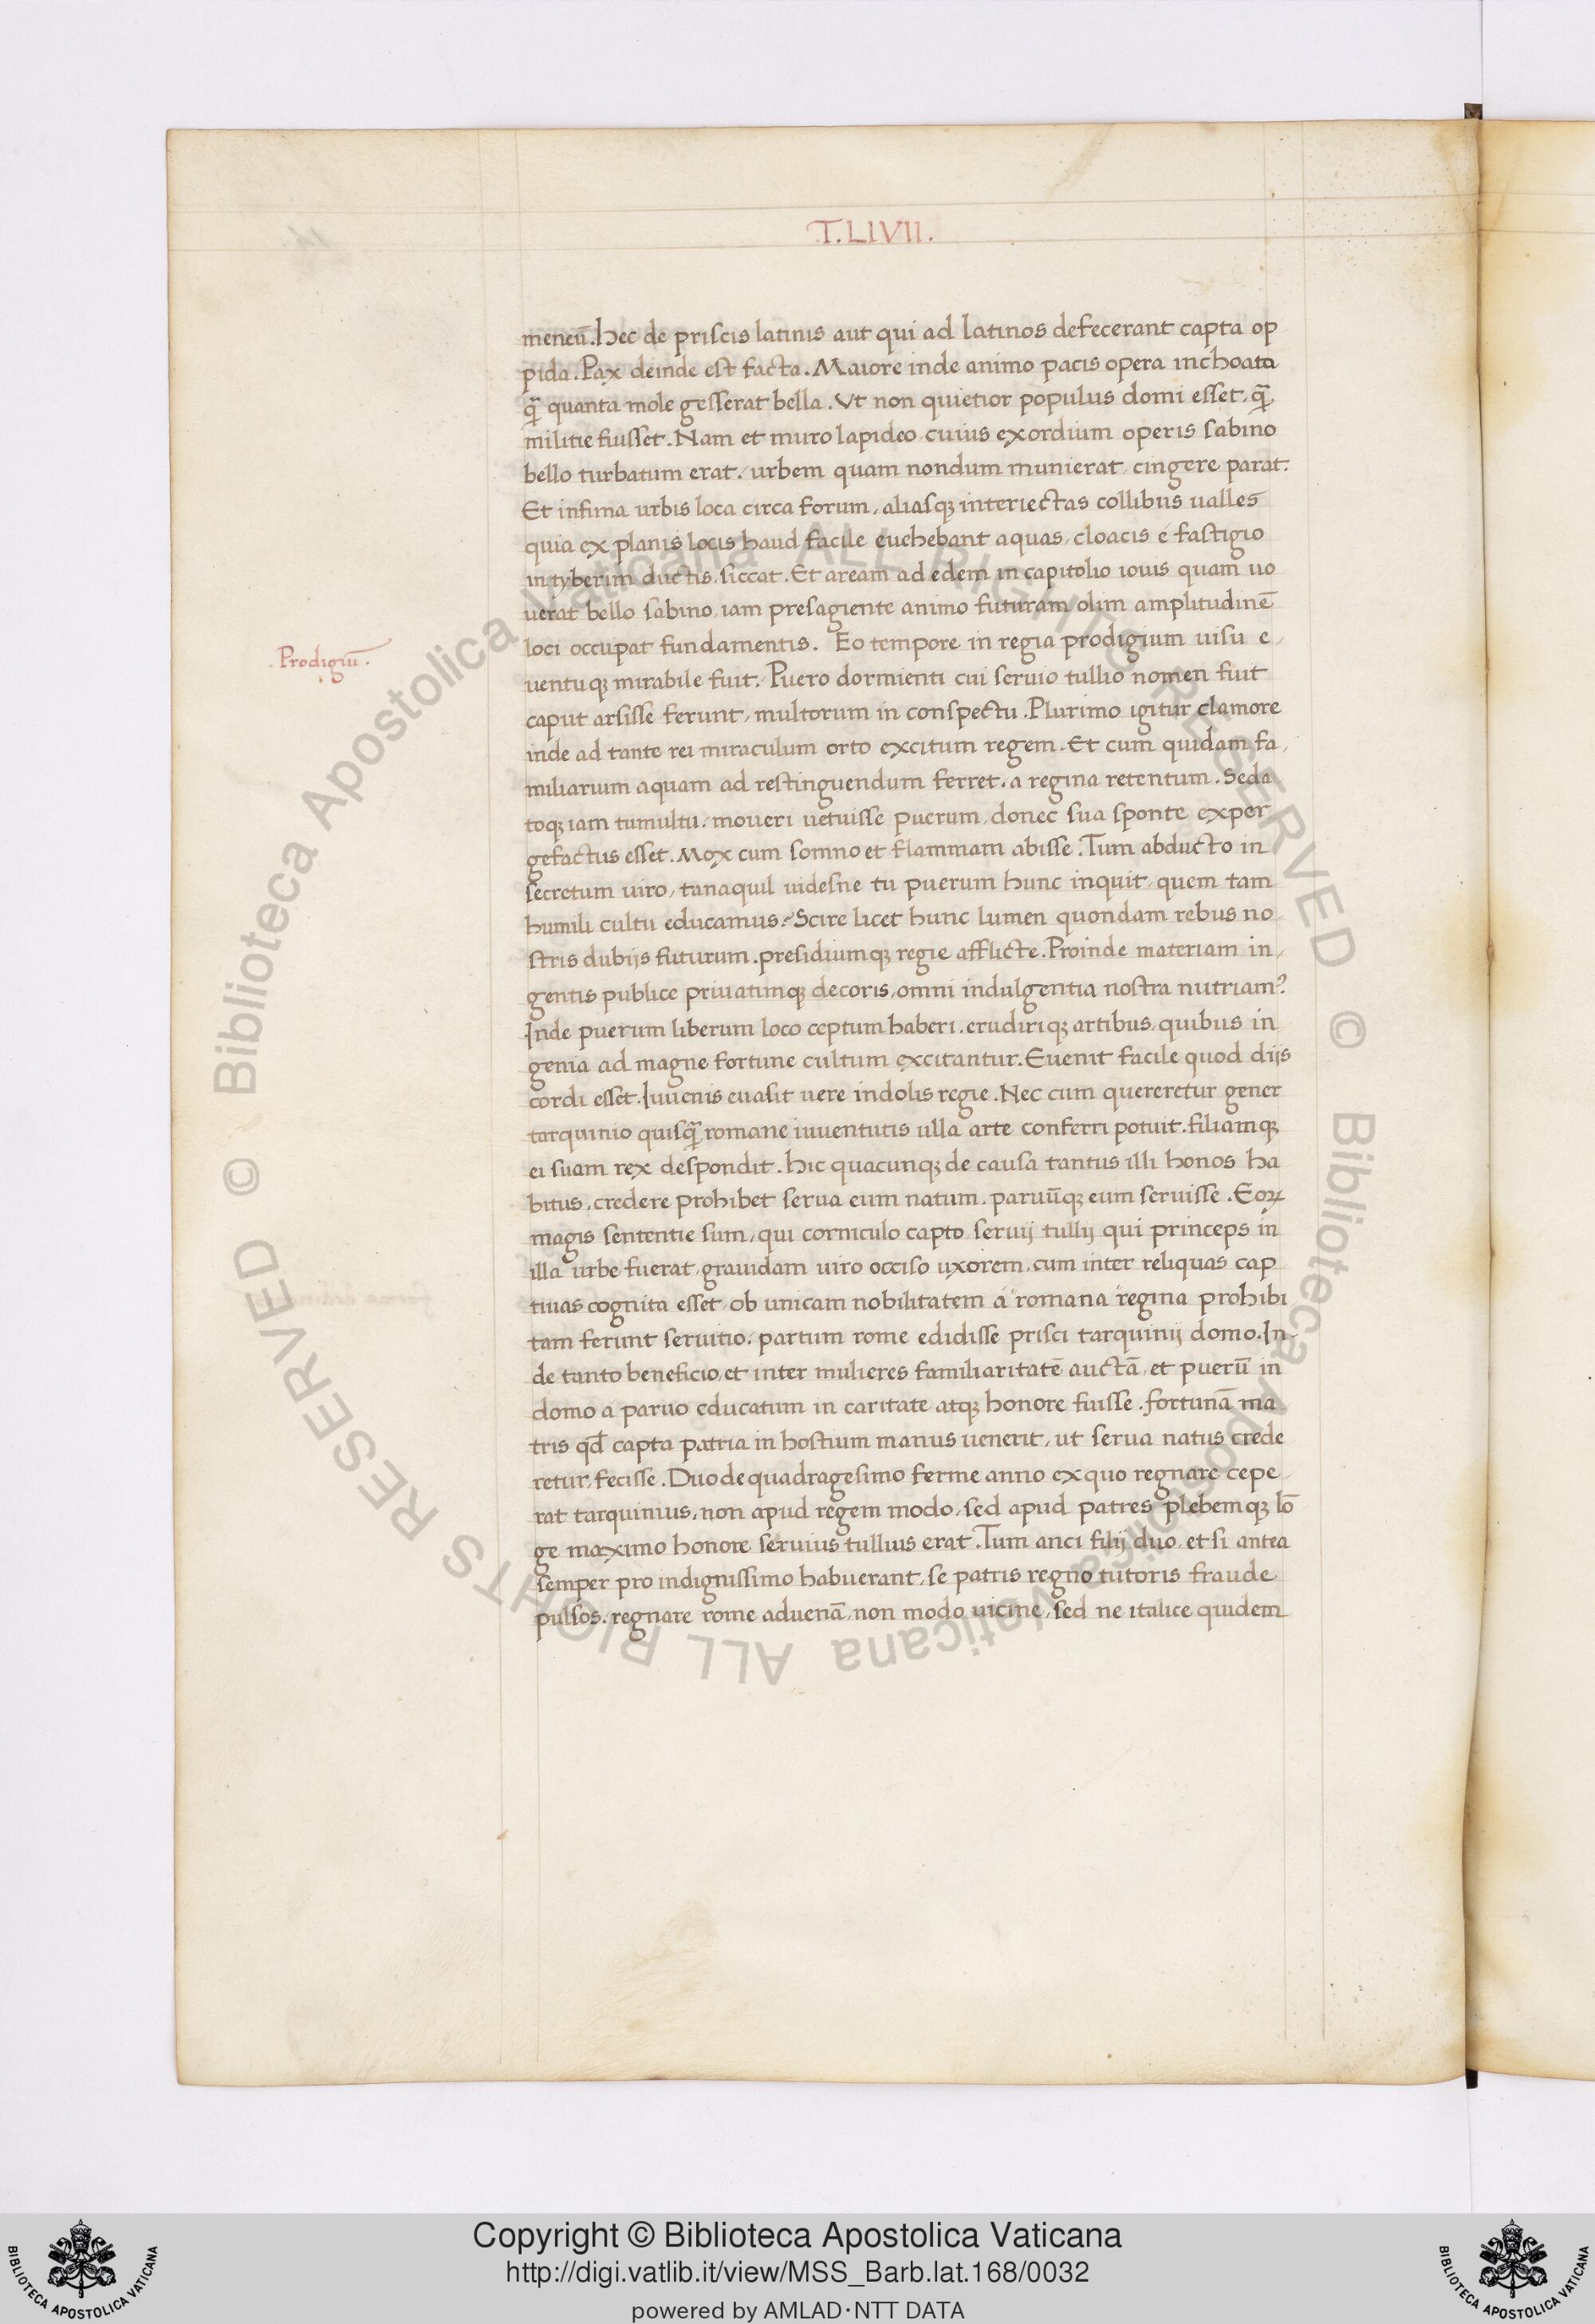 T. LIVII.
meneū. hec de priscis latinis aut qui ad latinos defecerant capta op
pida. Pax deinde est facta. Maiore inde animo pacis opera inchoata
qꝫ̃ quanta mole gesserat bella. Vt non quietior populus domi esset, qꝫ̃
militie fuisset. Nam et muro lapideo cuius exordium operis sabino
bello turbatum erat, urbem quam nondum munierat, cingere parat.
Et infima urbis loca circa forum, aliasqꝫ interiectas collibus ualles
quia ex planis locis haud facile euehebant aquas, cloacis e fastigio
in tyberim ductis, siccat. Et aream ad edem in capitolio iouis quam uo
uerat bello sabino, iam presagiente animo futuram olim amplitudinē
loci occupat fundamentis. Eo tempore in regia prodigium uisu e,
.Prodigiū.
uentuqꝫ mirabile fuit. Puero dormienti cui seruio tullio nomen fuit
caput arsisse ferunt, multorum in conspectu. Plurimo igitur clamore
inde ad tante rei miraculum orto excitum regem. Et cum quidam fa,
miliarium aquam ad restinguendum ferret, a regina retentum. Seda
toqꝫ iam tumultu, moueri uetuisse puerum, donec sua sponte exper
gefactus esset. Mox cum somno et flammam abisse. Tum abducto in
secretum uiro, tanaquil uidesne tu puerum hunc inquit, quem tam
humili cultu educamus? Scire licet hunc lumen quondam rebus no
stris dubijs futurum. presidiumqꝫ regie afflicte. Proinde materiam in,
gentis publice priuatimqꝫ decoris, omni indulgentia nostra nutriamꝰ.
Inde puerum liberum loco ceptum haberi. erudiriqꝫ artibus, quibus in
genia ad magne fortune cultum excitantur. Euenit facile quod dijs
cordi esset. Iuuenis euasit uere indolis regie. Nec cum quereretur gener
tarquinio quisqꝫ̃ romane iuuentutis ulla arte conferri potuit. filiamqꝫ
ei suam rex despondit. hic quacunqꝫ de causa tantus illi honos ha
bitus, credere prohibet serua eum natum. paruūqꝫ eum seruisse. Eoꝝ
magis sententie sum, qui corniculo capto seruij tullij qui princeps in
illa urbe fuerat, grauidam uiro occiso uxorem, cum inter reliquas cap
tiuas cognita esset, ob unicam nobilitatem a romana regina prohibi
tam ferunt seruitio. partum rome edidisse prisci tarquinij domo. In-
de tanto beneficio, et inter mulieres familiaritatē auctā, et puerū in
domo a paruo educatum in caritate atqꝫ honore fuisse. fortunā ma
tris qđ capta patria in hostium manus uenerit, ut serua natus crede
retur, fecisse. Duodequadragesimo ferme anno ex quo regnare cepe,
rat tarquinius, non apud regem modo, sed apud patres plebemqꝫ lō
ge maximo honore seruius tullius erat. Tum anci filij duo, et si antea
semper pro indignissimo habuerant, se patris regno tutoris fraude
pulsos. regnare rome aduenā, non modo uicine, sed ne italice quidem
Copyright © Biblioteca Apostolica Vaticana
http://digi.vatlib.it/view/MSS_Barb.lat.168/0032
powered by AMLAD·NTT DATA
BIBLIOTECA APOSTOLICA VATICANA
BIBLIOTECA APOSTOLICA VATICANA
© Biblioteca Apostolica Vaticana ALL RIGHTS RESERVED © Biblioteca Apostolica Vaticana ALL RIGHTS RESERVED